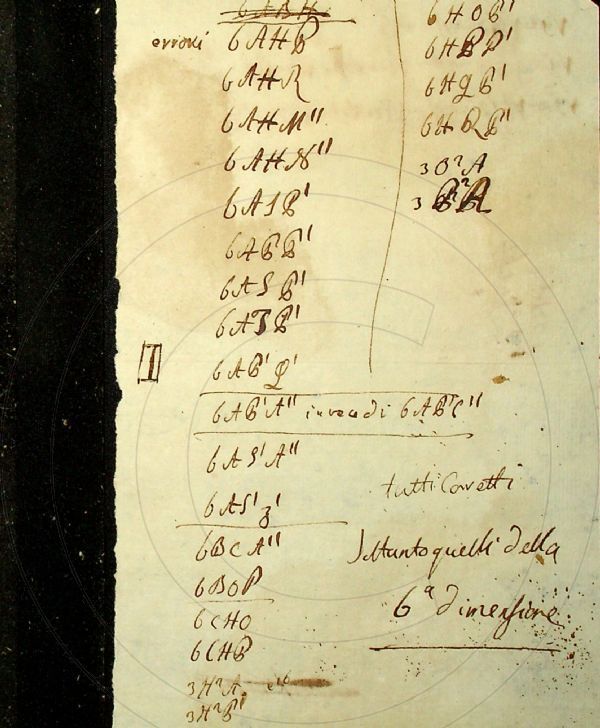 errori 6AHB
6AHR
6AHM"
6AHN"
6AIB'
6ABB'
6ASB'
6ATB'
I
6AB'Q'
6AB'A" in vece di 6AB'C"
6AS'A"
6AS'z'
6BCA"
6BOP
6CHO
6CHB
3H²A
3H²B'
6HOB'
6HBP'
6HQB'
6HRB'
3O²A
3
tutti Corretti
Soltanto quelli della
6ª dimensione